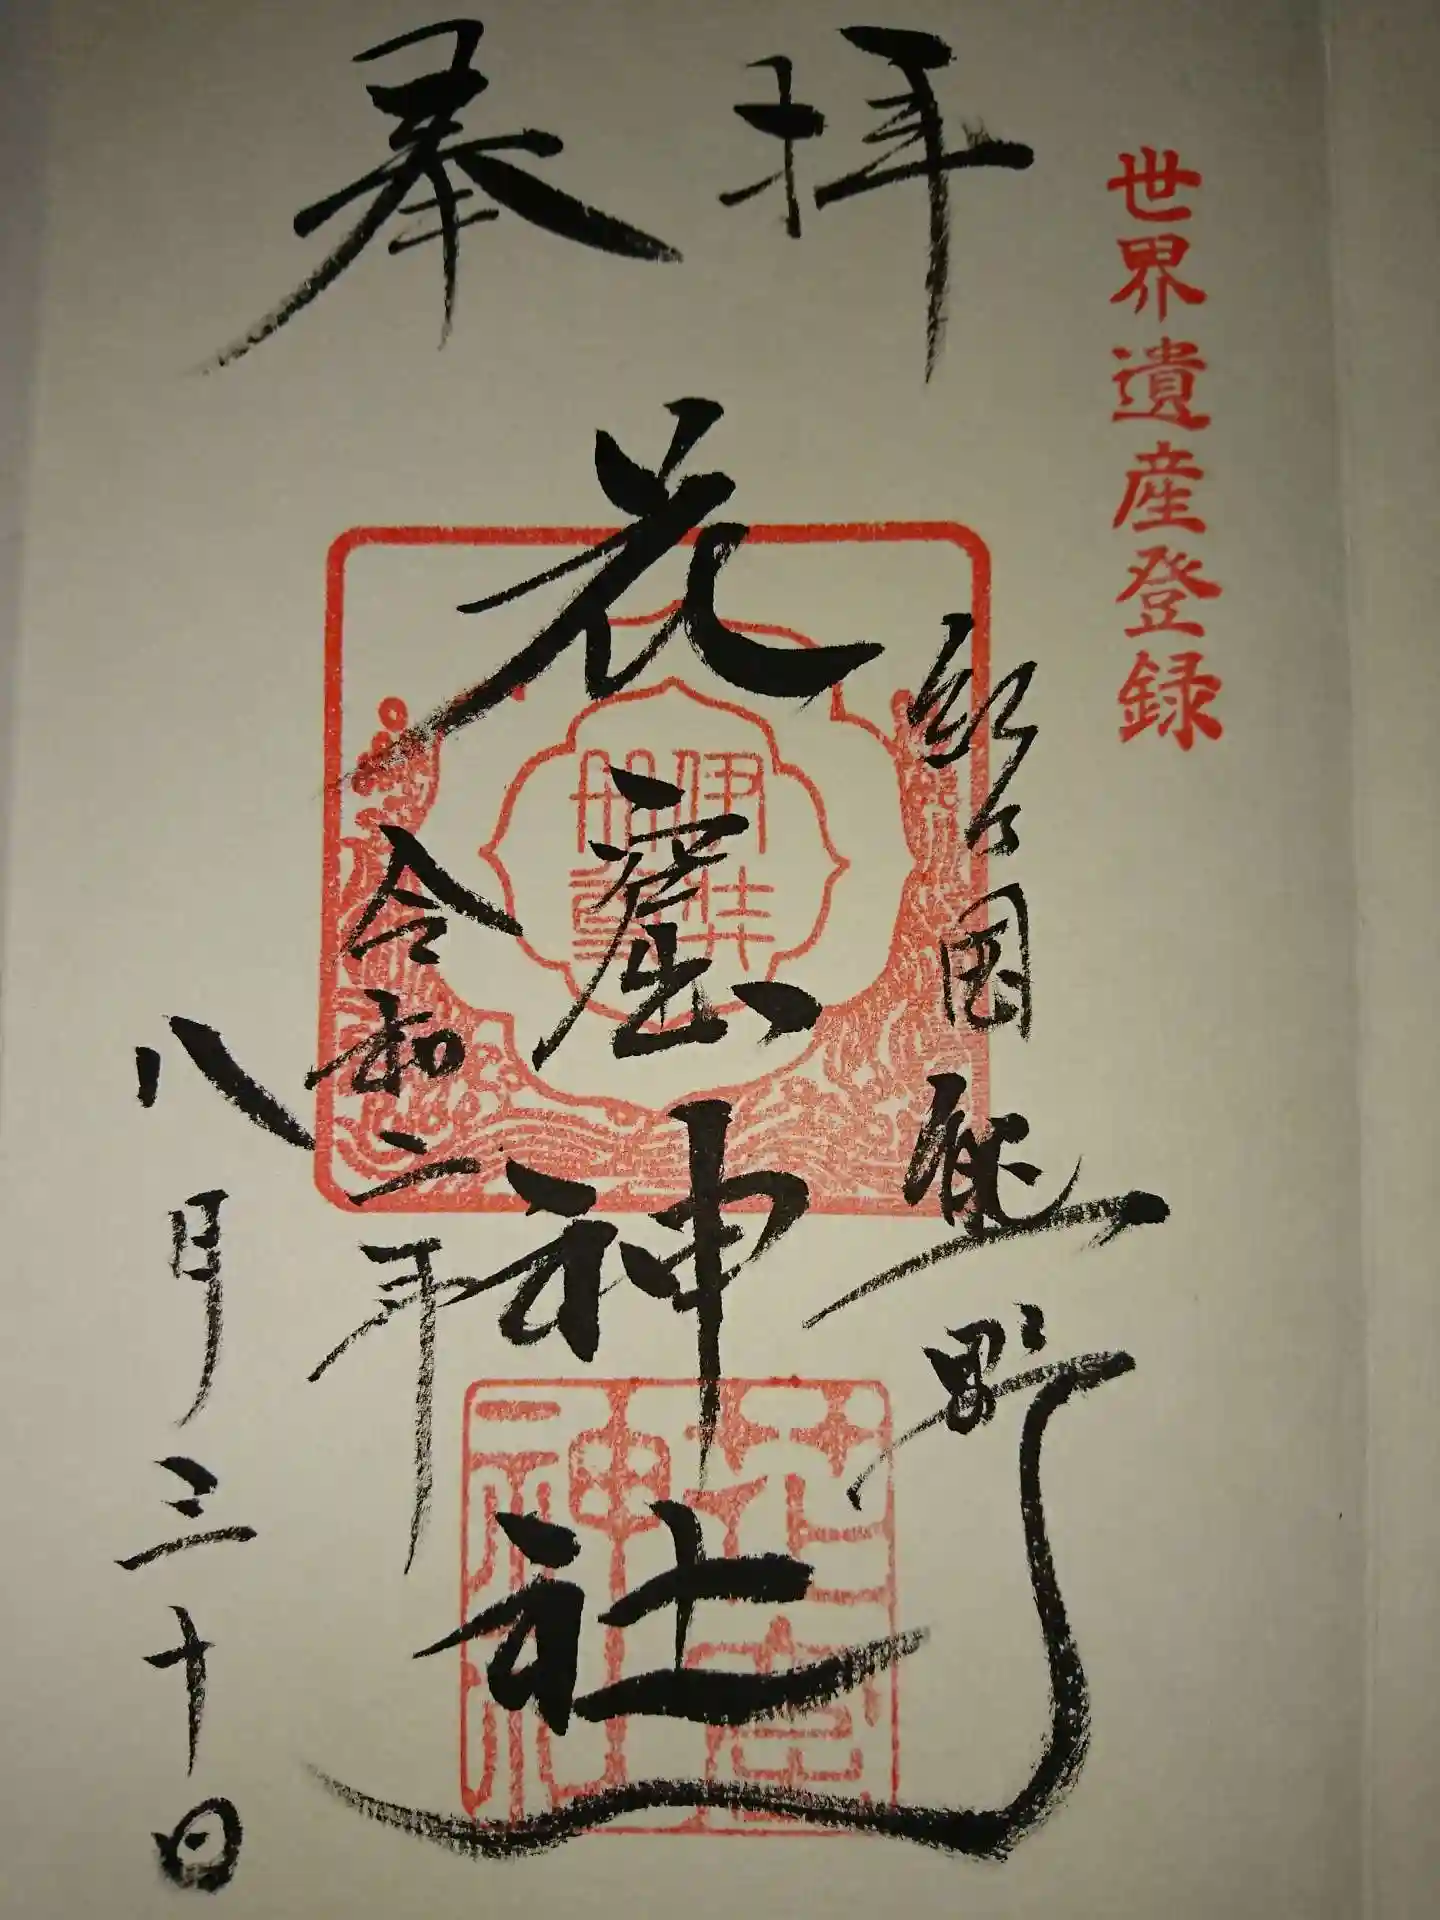 奉拝
世界遺産登録
紀国熊野
花窟神社
令和二年
八月三十日
伊弉冊尊
花窟神社